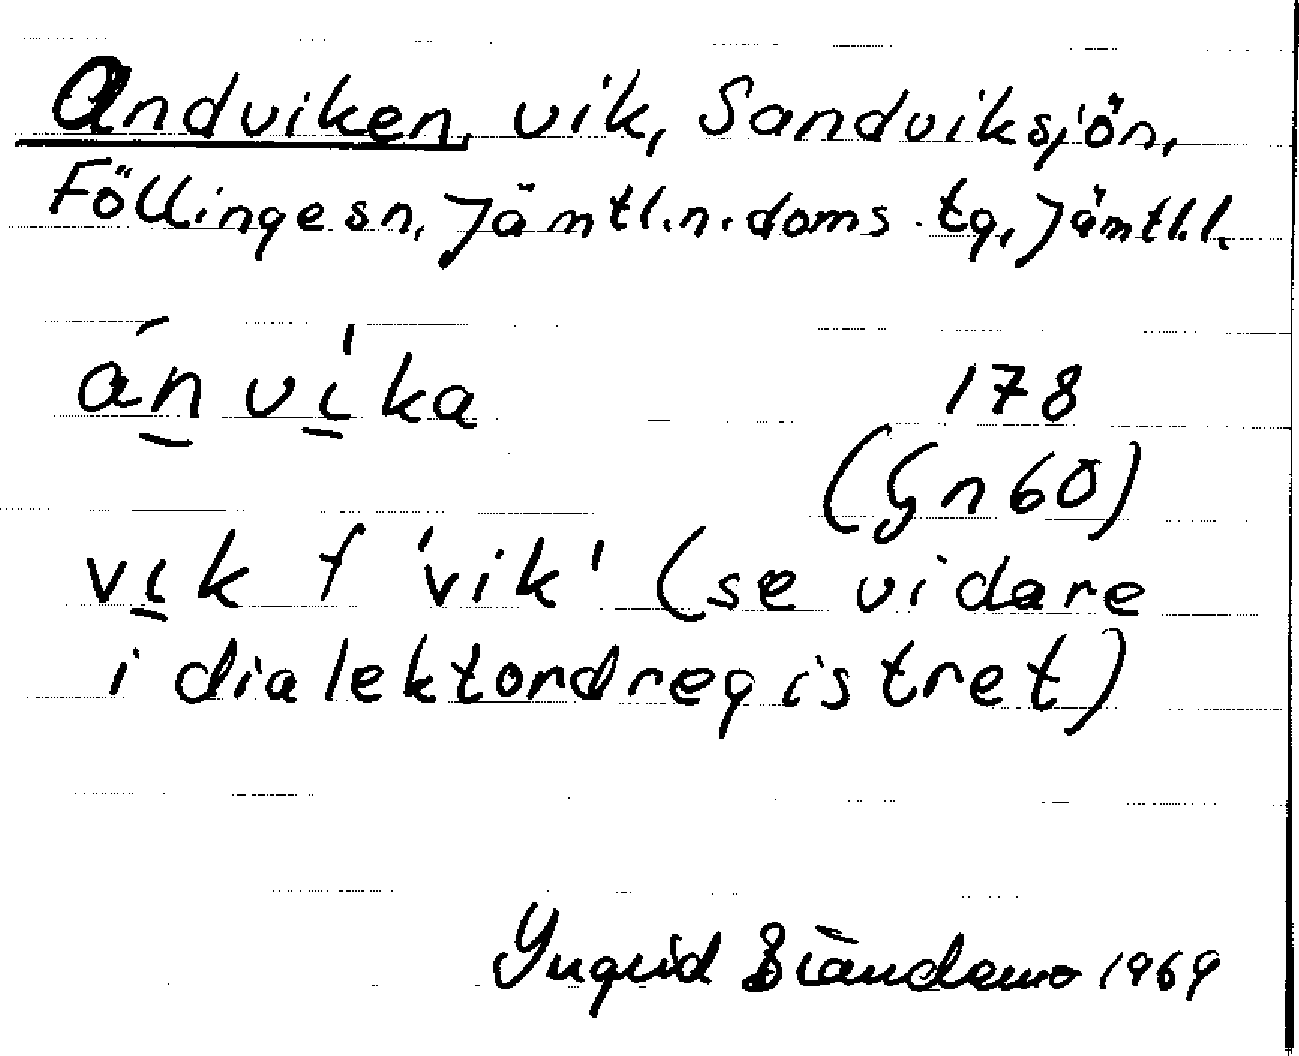 Andviken, vik, Sandviksjön,
Föllinge sn, Jämtl. n. doms. tg, Jämtl. l.
ánvíka 178
(Gn 60)
vık f 'vik' (se vidare
i dialektordregistret)
Ingrid 1969